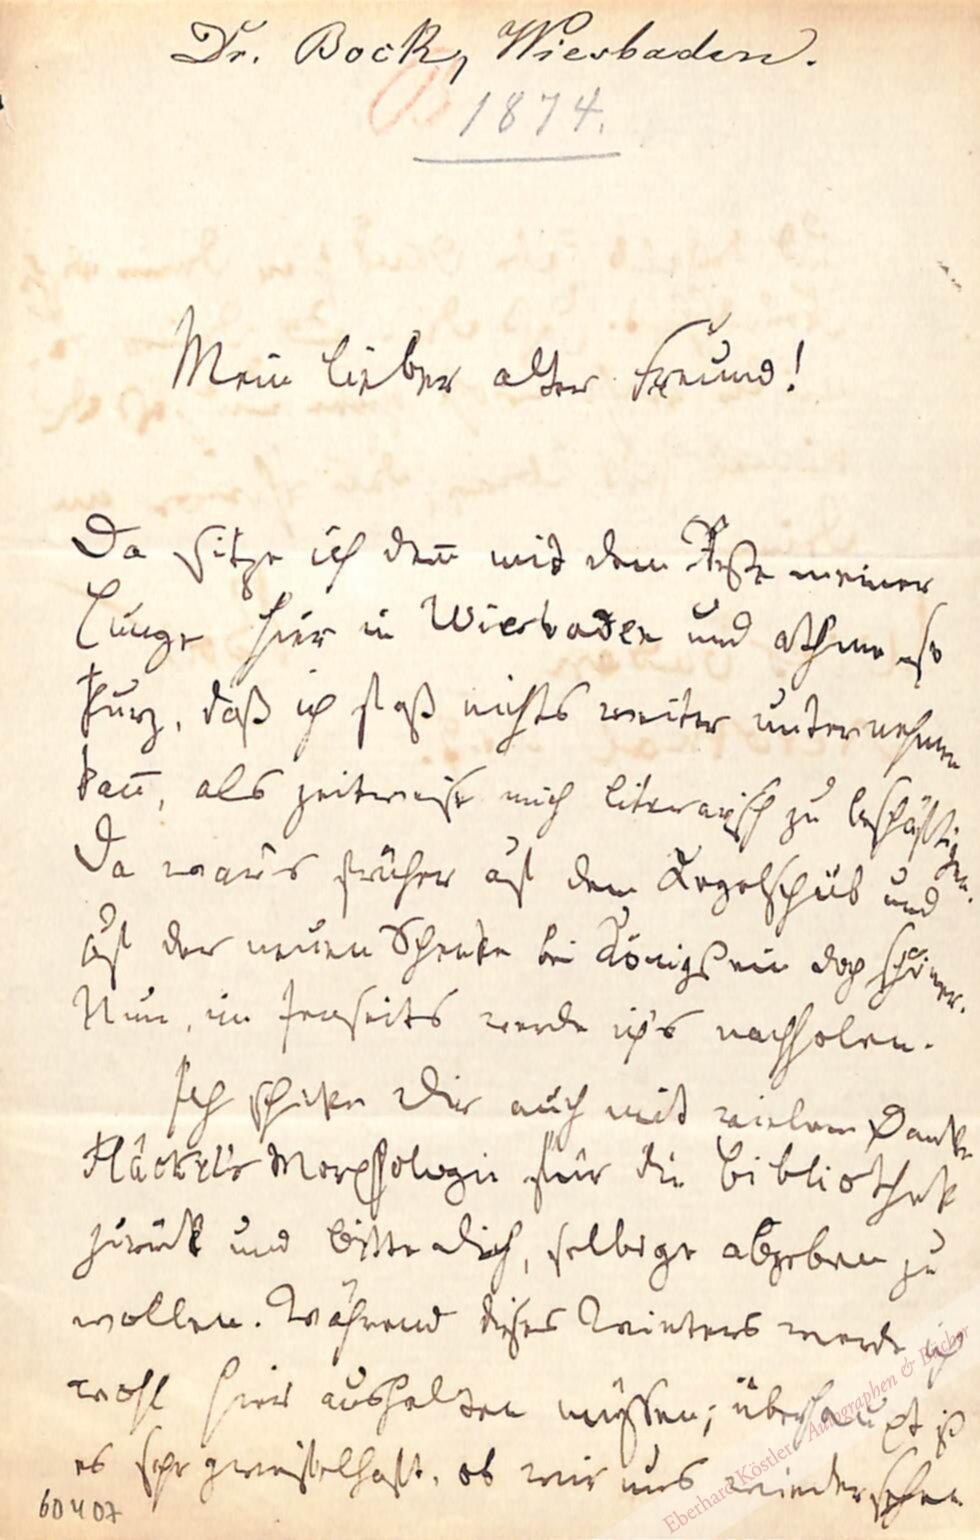 Dr. Bock, Wiesbaden.
1874.
Mein lieber alter Freund!
Da sitze ich deñ mit dem Reste meiner
Lunge hier in Wiesbaden und athme so
kurz, daß ich fast nichts weiter unternehmen
kañ, als zeitweise mich literarisch zu beschäftigen.
Da war's früher auf dem Kegelschub und
auf der neuen Schenke bei Königstein doch schöner.
Nun, im Jenseits werde ich's nachholen.
Ich schicke Dir auch mit vielem Danke
Häckel's Morphologie für die Bibliothek
zurück und bitte Dich, selbige abgeben zu
wollen. Während dieses Winters werde ich
wohl hier aushalten müssen; überhaupt ist
es sehr zweifelhaft, ob wir uns wiedersehen
60407
Eberhard Köstler - Autographen & Bücher